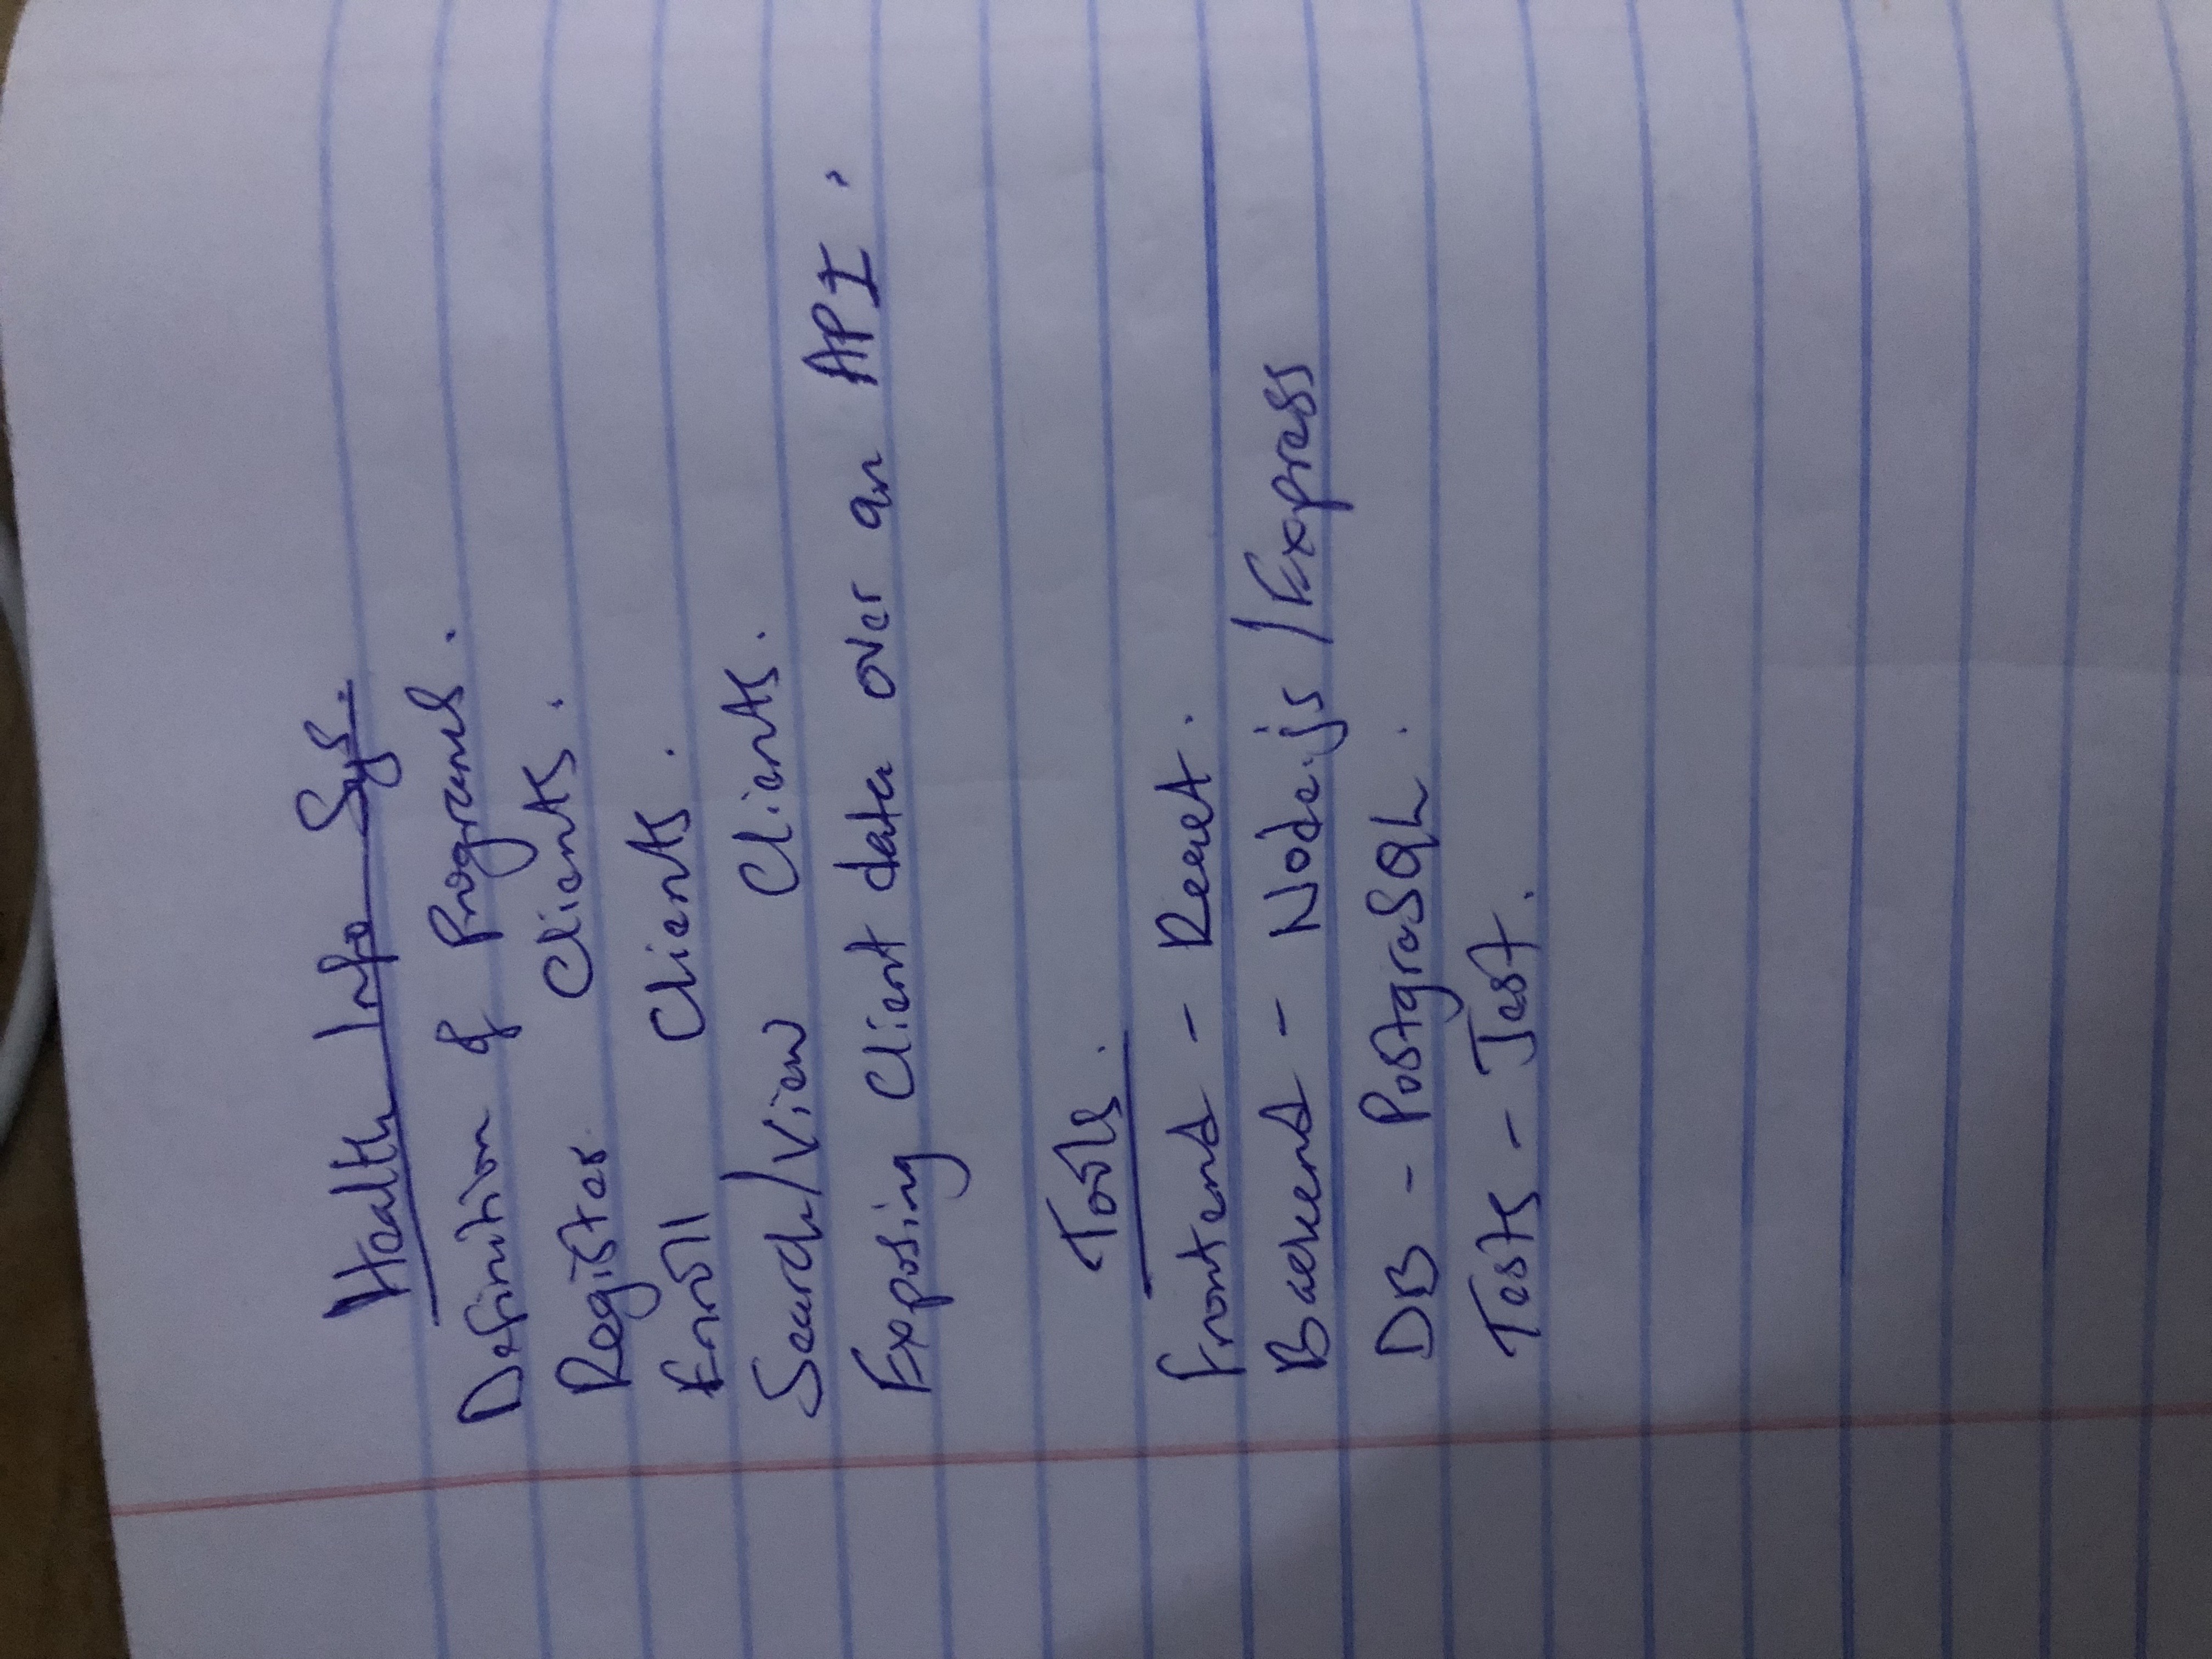 Health Info Sys.
Definition of Programs.
Register Clients.
Enroll Clients.
Search/View Clients.
Exposing Client data over an API.
Tools.
Frontend - React.
Backend - Node.js / Express
DB - PostgreSQL.
Tests - Jest.